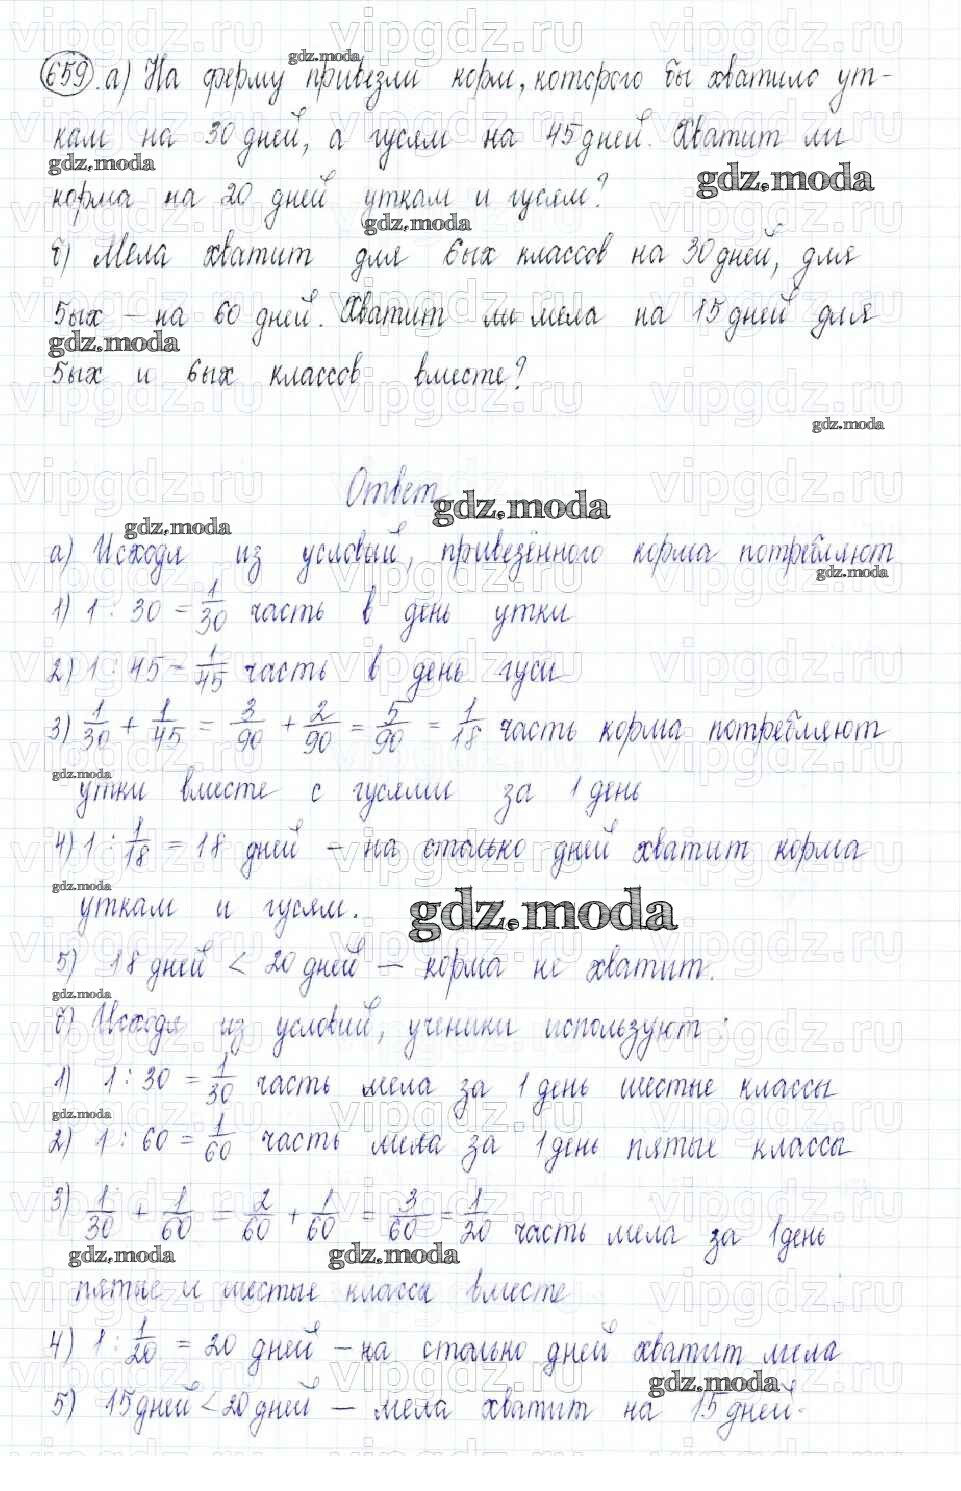 659. а) На ферму привезли корм, которого бы хватило ут-
кам на 30 дней, а гусям на 45 дней. Хватит ли
корма на 20 дней уткам и гусям?
б) Мела хватит для 6ых классов на 30 дней, для
5ых – на 60 дней. Хватит ли мела на 15 дней для
5ых и 6ых классов вместе?
Ответ
а) Исходя из условый, привезённого корма потребляют
1) 1 : 30 = 1/30 часть в день утки
2) 1 : 45 = 1/45 часть в день гуси
3) 1/30 + 1/45 = 3/90 + 2/90 = 5/90 = 1/18 часть корма потребляют
утки вместе с гусями за 1 день
4) 1 : 1/18 = 18 дней – на столько дней хватит корма
уткам и гусям.
5) 18 дней < 20 дней – корма не хватит.
б) Исходя из условий, ученики используют :
1) 1 : 30 = 1/30 часть мела за 1 день шестые классы
2) 1 : 60 = 1/60 часть мела за 1 день пятые классы
3) 1/30 + 1/60 = 2/60 + 1/60 = 3/60 = 1/20 часть мела за 1 день
пятые и шестые классы вместе
4) 1 : 1/20 = 20 дней – на столько дней хватит мела
5) 15 дней < 20 дней – мела хватит на 15 дней.
gdz.moda
vipgdz.ru